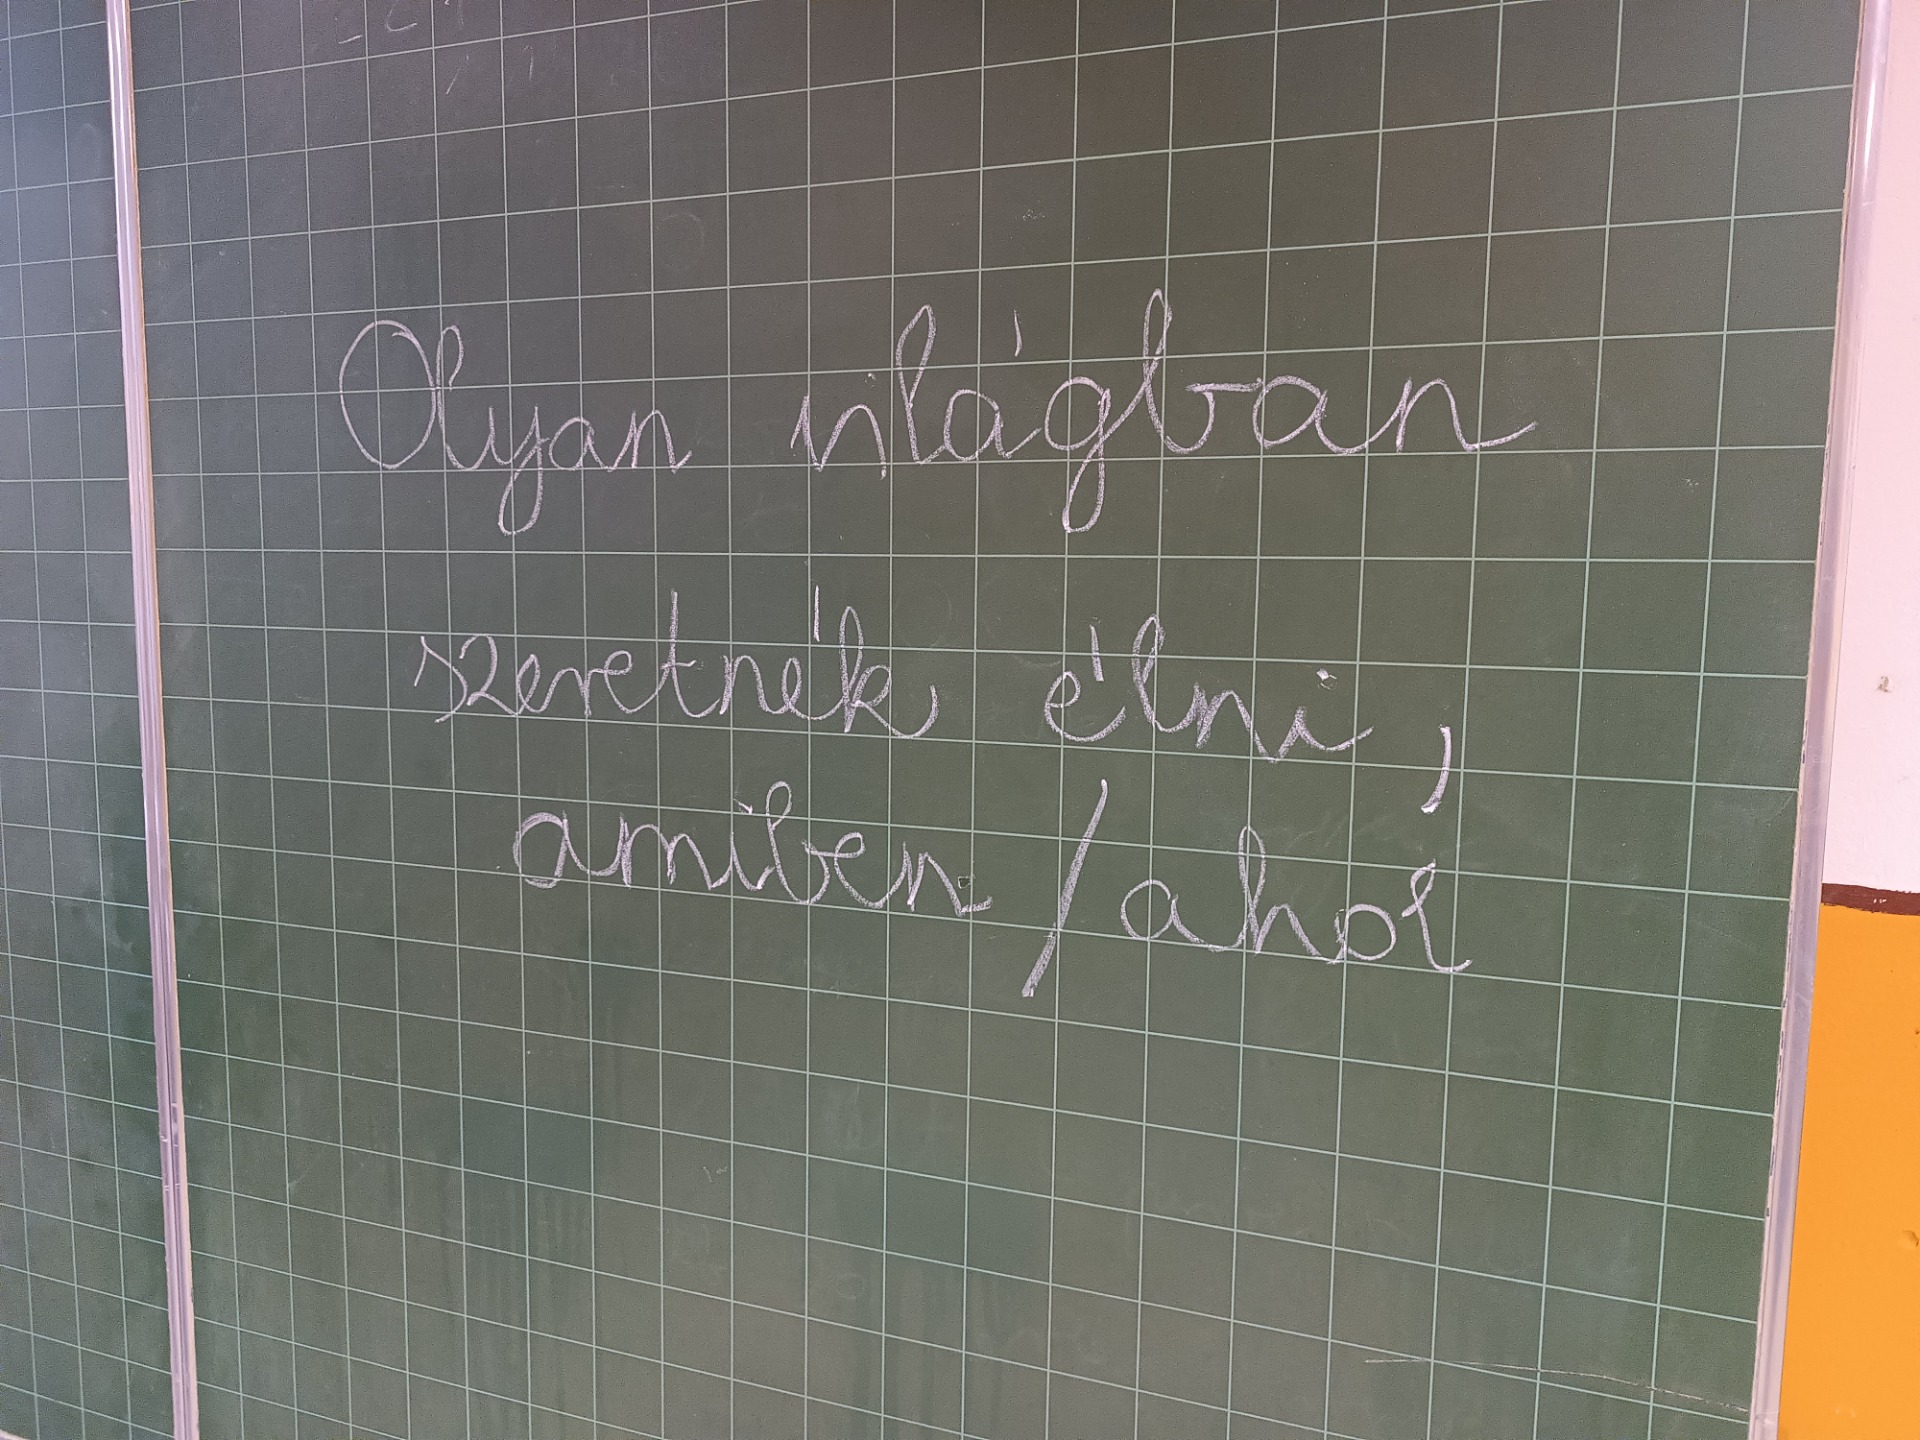 Olyan világban
szeretnék élni,
amiben / ahol